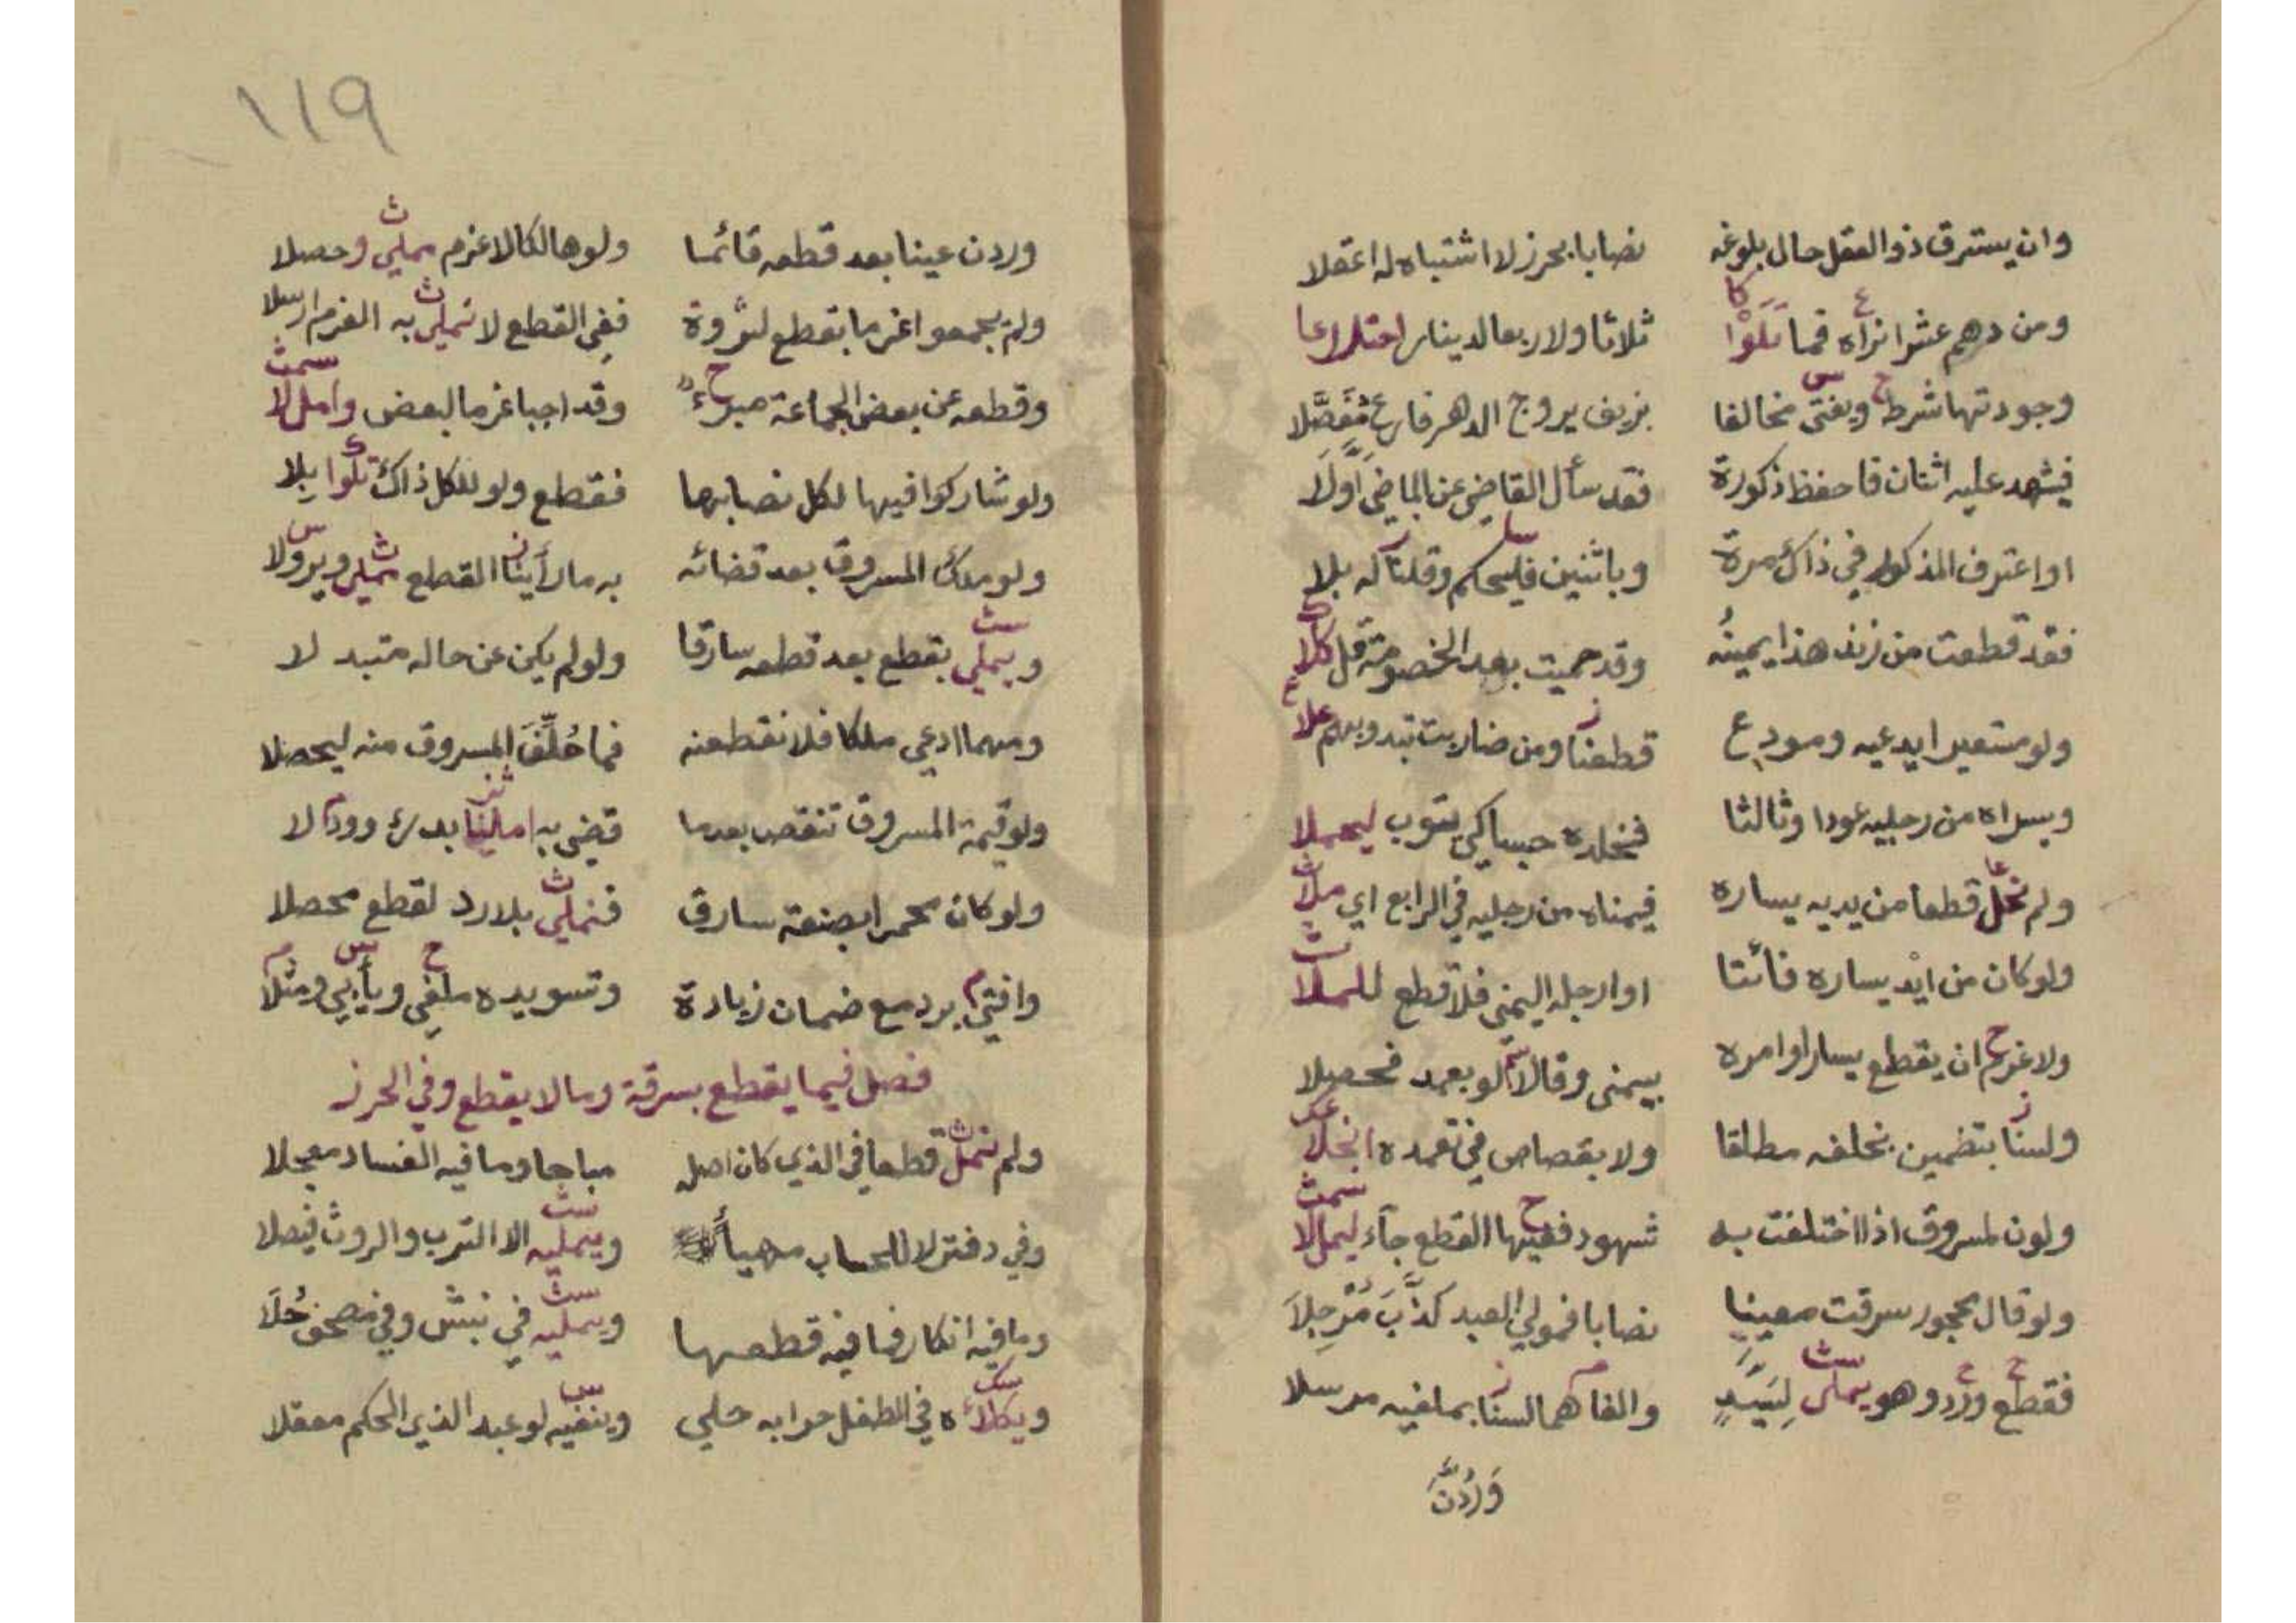 وان يسترق ذو العقل حال بلوغه نصابا بحرز لا اشتباه له اعقلا
ومن درهم عشرا نراه فما تلوا ثلاثا ولا ربعا لدينار
وجودتها شرط ويفتى مخالفا بزيف يروج الدهر فارع مفصلا
فيشهد عليه اثنان فاحفظ ذكورة فقد سأل القاضي عن الماضي اولا
او اعترف المذكور في ذاك مرة وباثنين فليحكم وقلنا له بلا
فقد قطعت من زند هذا يمينه وقد حميت بعد الخصومة قل كلا
ولو مستعيرا يدعيه ومودع قطعنا ومن ضاربت
ويسراه من رجليه عودا وثالثا فخلده حبسا كي يتوب ليهملا
ولم نمل قطعا من يديه يساره فيمناه من رجليه في الرابع اي ملا
ولو كان من ايد يساره فائتا او ارجله اليمنى فلا قطع للملا
ولا غرم ان يقطع يسارا وامره بيمنى وقالا لو بعمد فحصلا
ولسنا بتضمين نخلفه مطلقا ولا بقصاص في تعمده انجلا
ولون لمسروق اذا اختلفت به شهود ففيها القطع جاء ليملا
ولو قال محجور سرقت معينا نصابا فمولى العبد كذب مرجلا
فقطع ورد وهو يملى لسيد والغاهما لسنا بملغيه مرسلا
وردن
١١٩
وردن عينا بعد قطعه قائما ولو هالكا لا غرم يملي وحصلا
ولم يجمعوا غرما بقطع لثروة ففي القطع لا نملي به الغرم ارسلا
وقطعه عن بعض الجماعة مبرء وقد اجبا غرما لبعض واملا
ولو شاركوا فيها لكل نصابها فقطع ولو للكل ذاك تلوا بلا
ولو ملك المسروق بعد قضائه به ما رأينا القطع يملى
ويملي بقطع بعد قطعه سارقا ولو لم يكن عن حاله متبدلا
ومهما ادعى ملكا فلا نقطعنه فما حلف المسروق منه ليحصلا
ولو قيمة المسروق تنقص بعدما قضي به املينا بدرء
ولو كان محمرا بصنعة سارق فنملي بلا رد لقطع محصلا
وافتى برد مع ضمان زيادة وتسويده ملغى ويأبى ومثلا
فصل فيما يقطع بسرقة وما لا يقطع وفي الحرز
ولم نمل قطعا في الذي كان اصله مباحا وما فيه الفساد معجلا
وفي دفتر لا للحساب مهيأ ويمليه الا الترب والروث فيصلا
وما فيه انكار فما فيه قطعها ويمليه في نبش وفي مصحف حلا
ويكلأه في الطفل حرا به حلي وينفيه لو عبد الذي الحكم معقلا